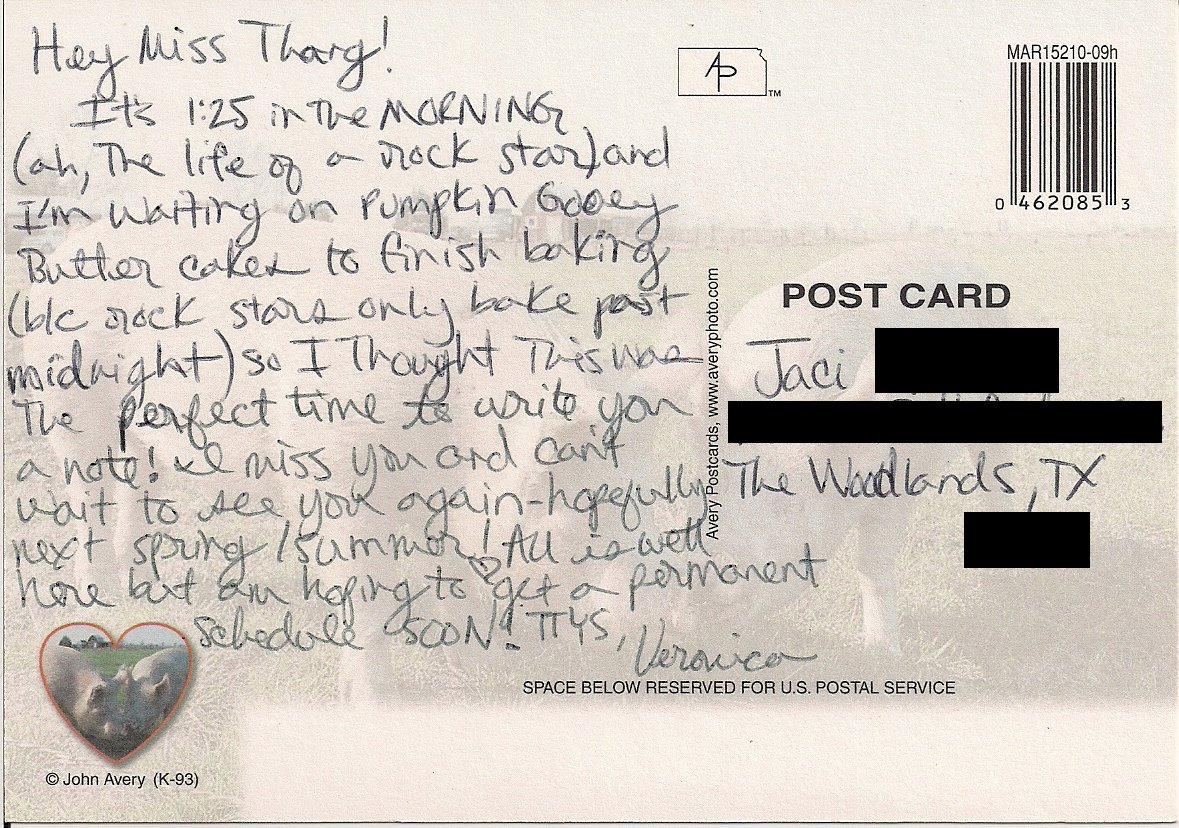 Hey Miss Thang!
It's 1:25 in the MORNING
(ah, the life of a rock star) and
I'm waiting on Pumpkin Gooey
Butter cakes to finish baking
(b/c rock stars only bake past
midnight) so I thought this was
the perfect time to write you
a note! I miss you and can't
wait to see you again-hopefully
next spring/summer! All is well
here but am hoping to get a permanent
schedule SOON! TTYS,
Veronica
© John Avery (K-93)
AP
TM
MAR15210-09h
0 462085 3
Avery Postcards, www.averyphoto.com
POST CARD
Jaci
The Woodlands, TX
SPACE BELOW RESERVED FOR U.S. POSTAL SERVICE